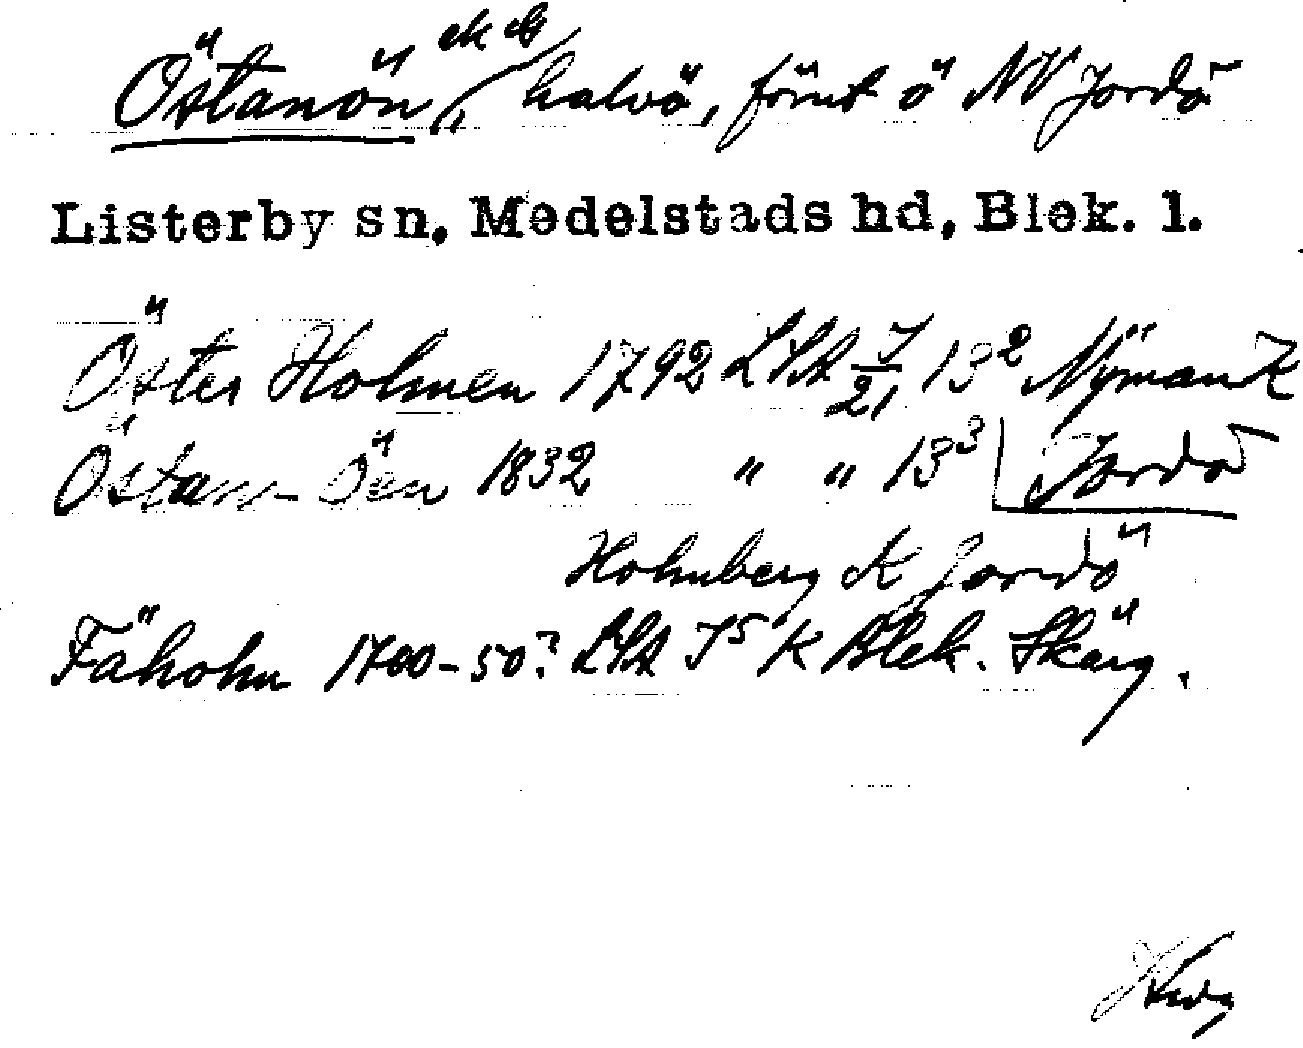 Östanön ek eg halvö, förut ö NV Jordö
Listerby sn, Medelstads hd, Blek. l.
Öster Holmen 1792 LSA J/21, 13² Nyman K
Östan-Öen 1832 " " 13³ Jordö
Holmberg K Jordö
Fäholm 1700-50? LSA J5 K Blek. Skärg.